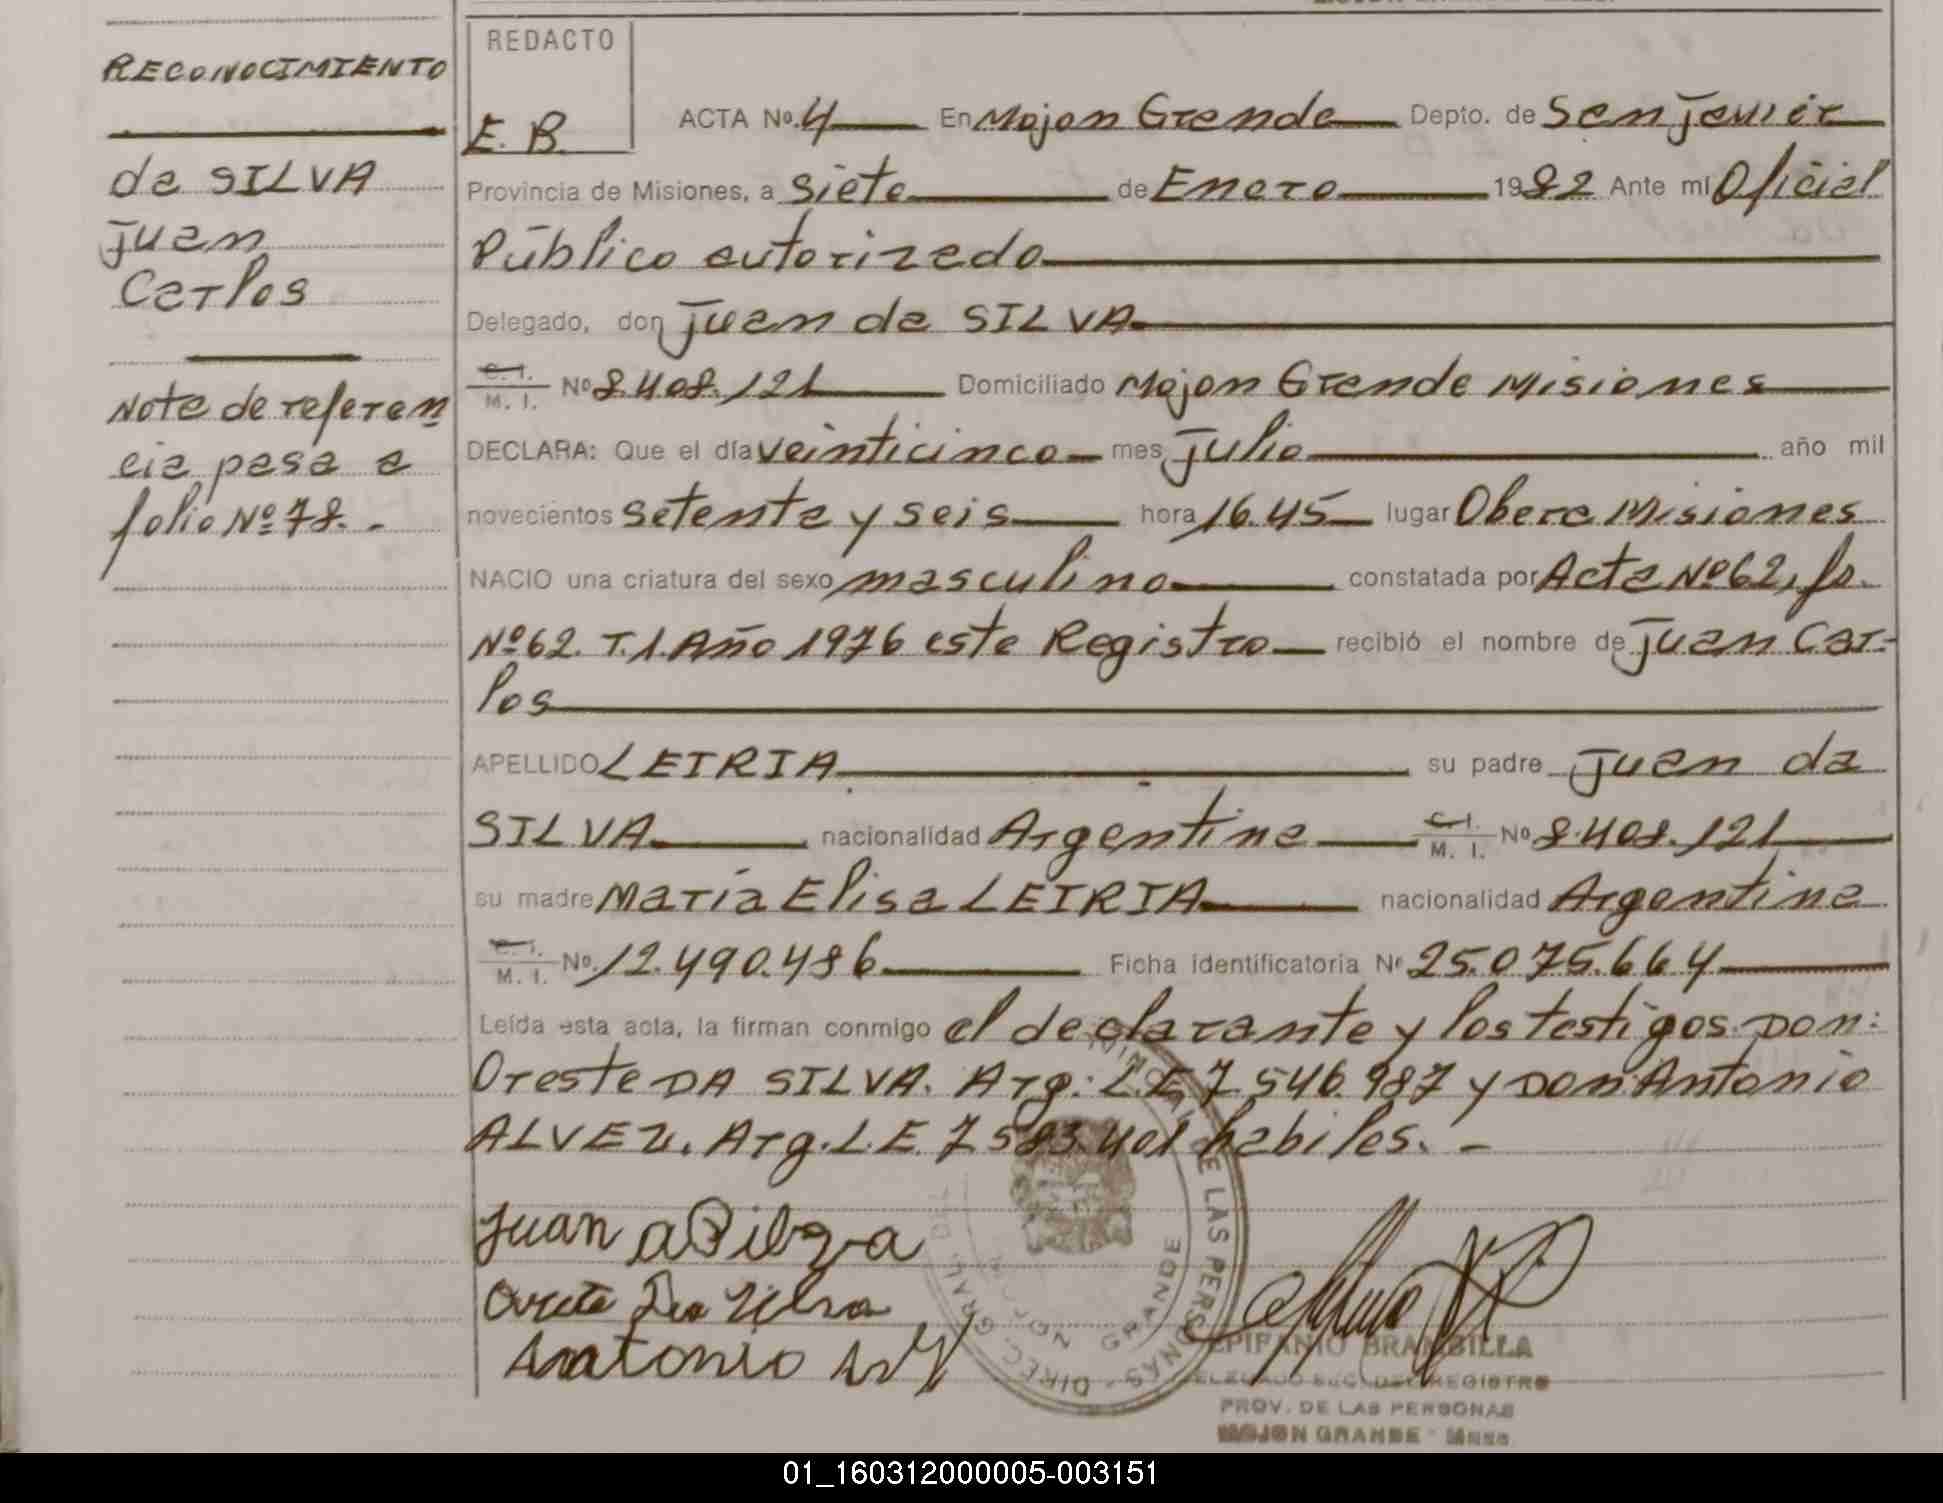 RECONOCIMIENTO
da SILVA
Juan
Carlos
Nota de referen
cia pasa a
folio Nº 78. -
REDACTO
E. B.
ACTA No. 4 En Mojon Grande Depto. de San Javier
Provincia de Misiones, a siete de Enero 1982 Ante mí Oficial
Público autorizado
Delegado, don Juan da SILVA
C. I.
M. I. Nº 8.408.121 Domiciliado Mojon Grande Misiones
DECLARA: Que el día veinticinco mes Julio año mil
novecientos setenta y seis hora 16.45 lugar Obera Misiones
NACIO una criatura del sexo masculino constatada por Acta Nº 62, fo.
Nº 62. T. 1. Año 1976 este Registro recibió el nombre de Juan Car-
los
APELLIDO LEIRIA su padre Juan da
SILVA nacionalidad Argentina C. I.
M. I. Nº 8.408.121
su madre María Elisa LEIRIA nacionalidad Argentina
C. I.
M. I. Nº 12.490.486 Ficha identificatoria Nº 25.075.664
Leída esta acta, la firman conmigo el declarante y los testigos Don:
Oreste DA SILVA. Arg: L.E. 7.546.987 y Don Antonio
ALVEZ. Arg. L.E. 7.583.401 habiles. -
Juan
Da Silva
Antonio
DIREC. GRAL. DE LAS PERSONAS
MOJON GRANDE
EPIFANIO BRAMBILLA
DELEGADO ENC. DEL REGISTRO
PROV. DE LAS PERSONAS
MOJON GRANDE - Mnes.
01_160312000005-003151